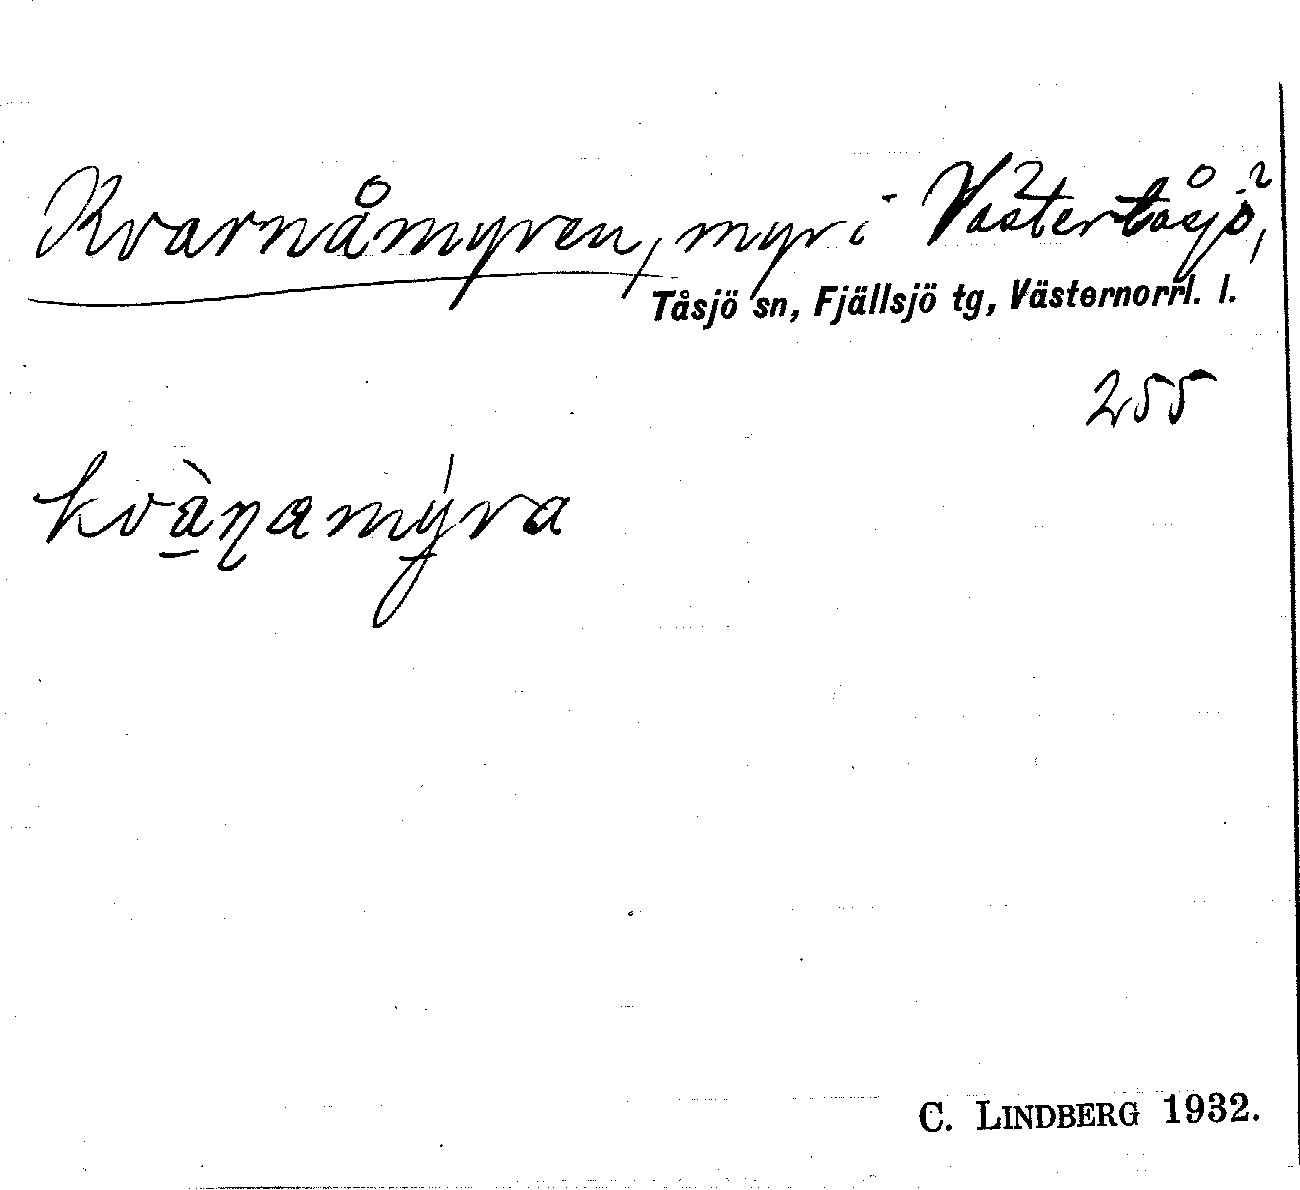 Kvarnåmyren, myr i Västertåsjö,
Tåsjö sn, Fjällsjö tg, Västernorrl. l.
255
kvà̱ɳamýra
C. LINDBERG 1932.